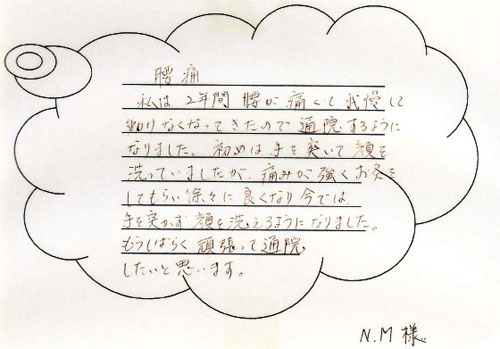 腰痛
私は2年間腰が痛くて我慢して
切りなくなってきたので通院するように
なりました。初めは手を突いて顔を
洗っていましたが、痛みが強くお灸を
してもらい徐々に良くなり今では
手を突かず顔を洗えるようになりました。
もうしばらく頑張って通院
したいと思います。
N.M様